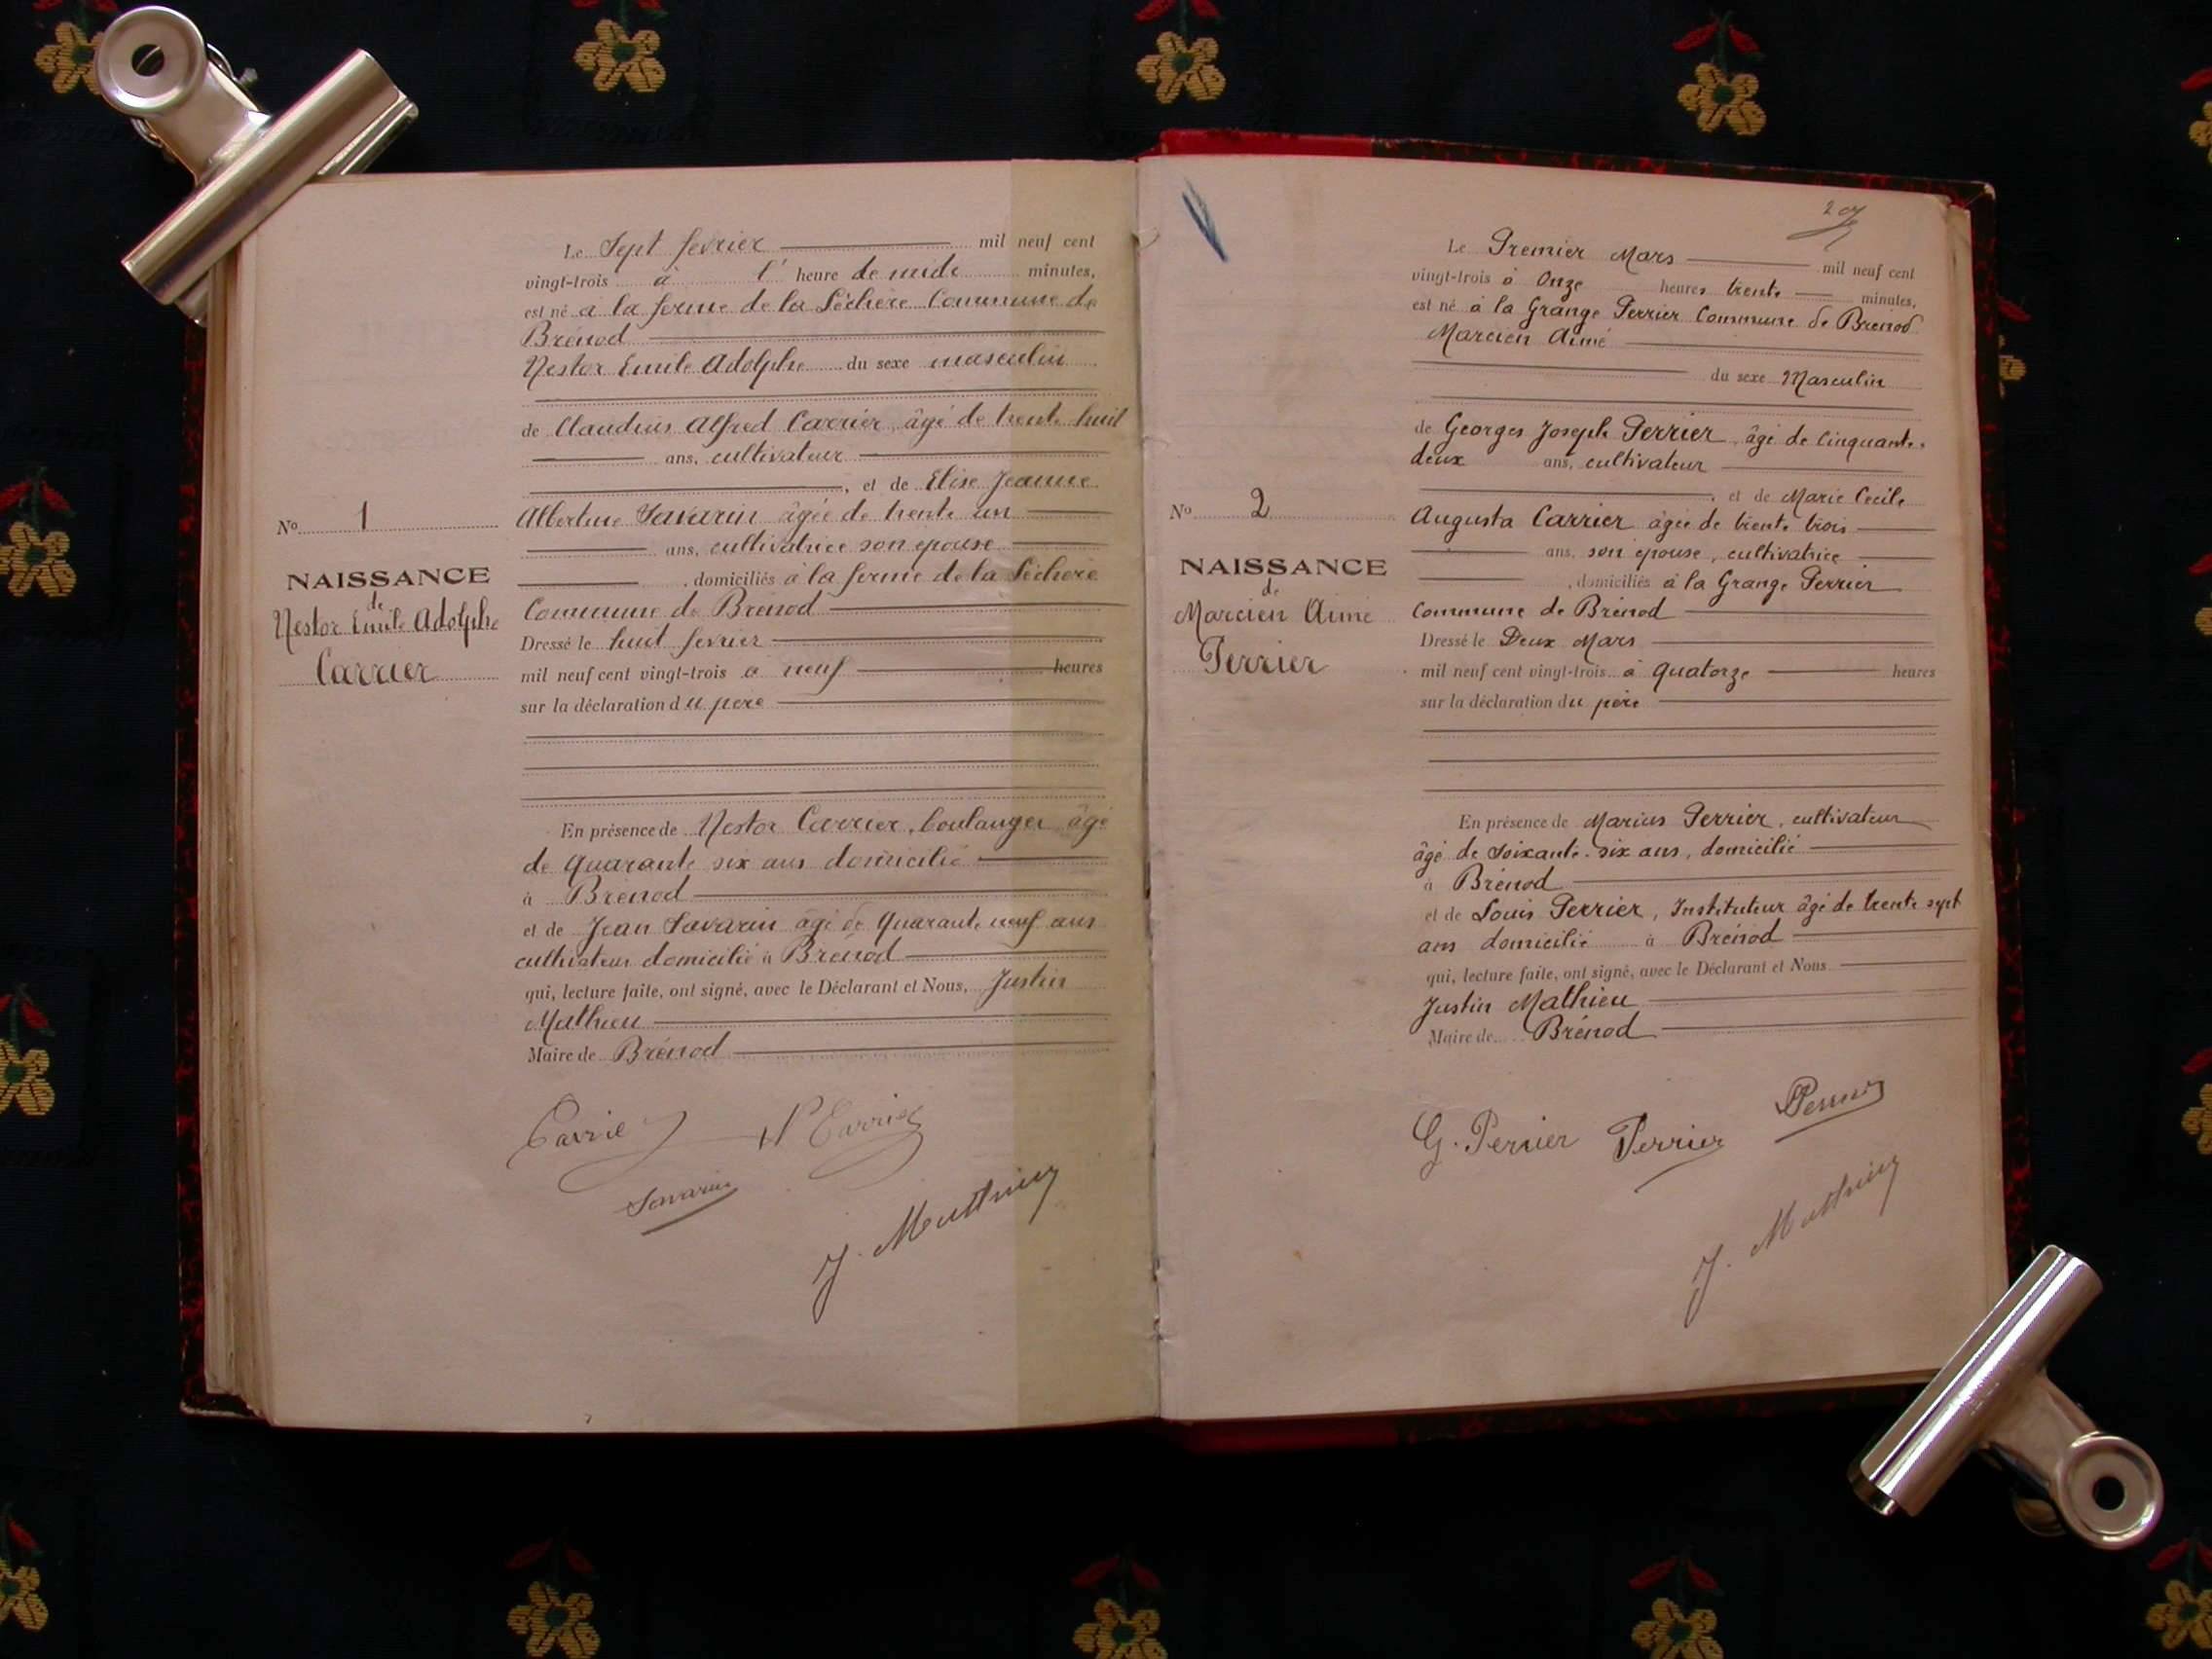 Le Sept fevrier mil neuf cent
vingt-trois à l' heure de midi minutes,
est né à la ferme de la Léchère Commune de
Brénod
Nestor Emile Adolphe du sexe masculin
de Claudius Alfred Carrier, âgé de trente huit
ans, cultivateur
, et de Elise Jeanne
Albertine Savarin âgée de trente un
ans, cultivatrice son épouse
, domiciliés à la ferme de la Léchère
Commune de Brénod
Dressé le huit fevrier
mil neuf cent vingt-trois à neuf heures
sur la déclaration du père
No 1
NAISSANCE
de
Nestor Emile Adolphe
Carrier
En présence de Nestor Carrier, boulanger âgé
de quarante six ans domicilié
à Brénod
et de Jean Savarin âgé de quarante neuf ans
cultivateur domicilié à Brénod
qui, lecture faite, ont signé, avec le Déclarant et Nous, Justin
Mathieu
Maire de Brénod
Carrier N Carrier
Savarin
J. Mathieu
Le Premier Mars mil neuf cent
vingt-trois à Onze heures trente minutes,
est né à la Grange Perrier Commune de Brénod
Marcien Aimé
du sexe Masculin
de Georges Joseph Perrier, âgé de Cinquante-
deux ans, cultivateur
, et de Marie Cecile
Augusta Carrier âgée de trente trois
ans, son épouse, cultivatrice
, domiciliés à la Grange Perrier
Commune de Brénod
Dressé le Deux Mars
mil neuf cent vingt-trois à quatorze heures
sur la déclaration du père
No 2
NAISSANCE
de
Marcien Aimé
Perrier
En présence de Marius Perrier, cultivateur
âgé de soixante-six ans, domicilié
à Brénod
et de Louis Perrier, Instituteur âgé de trente sept
ans domicilié à Brénod
qui, lecture faite, ont signé, avec le Déclarant et Nous
Justin Mathieu
Maire de Brénod
G. Perrier Perrier Perrier
J. Mathieu